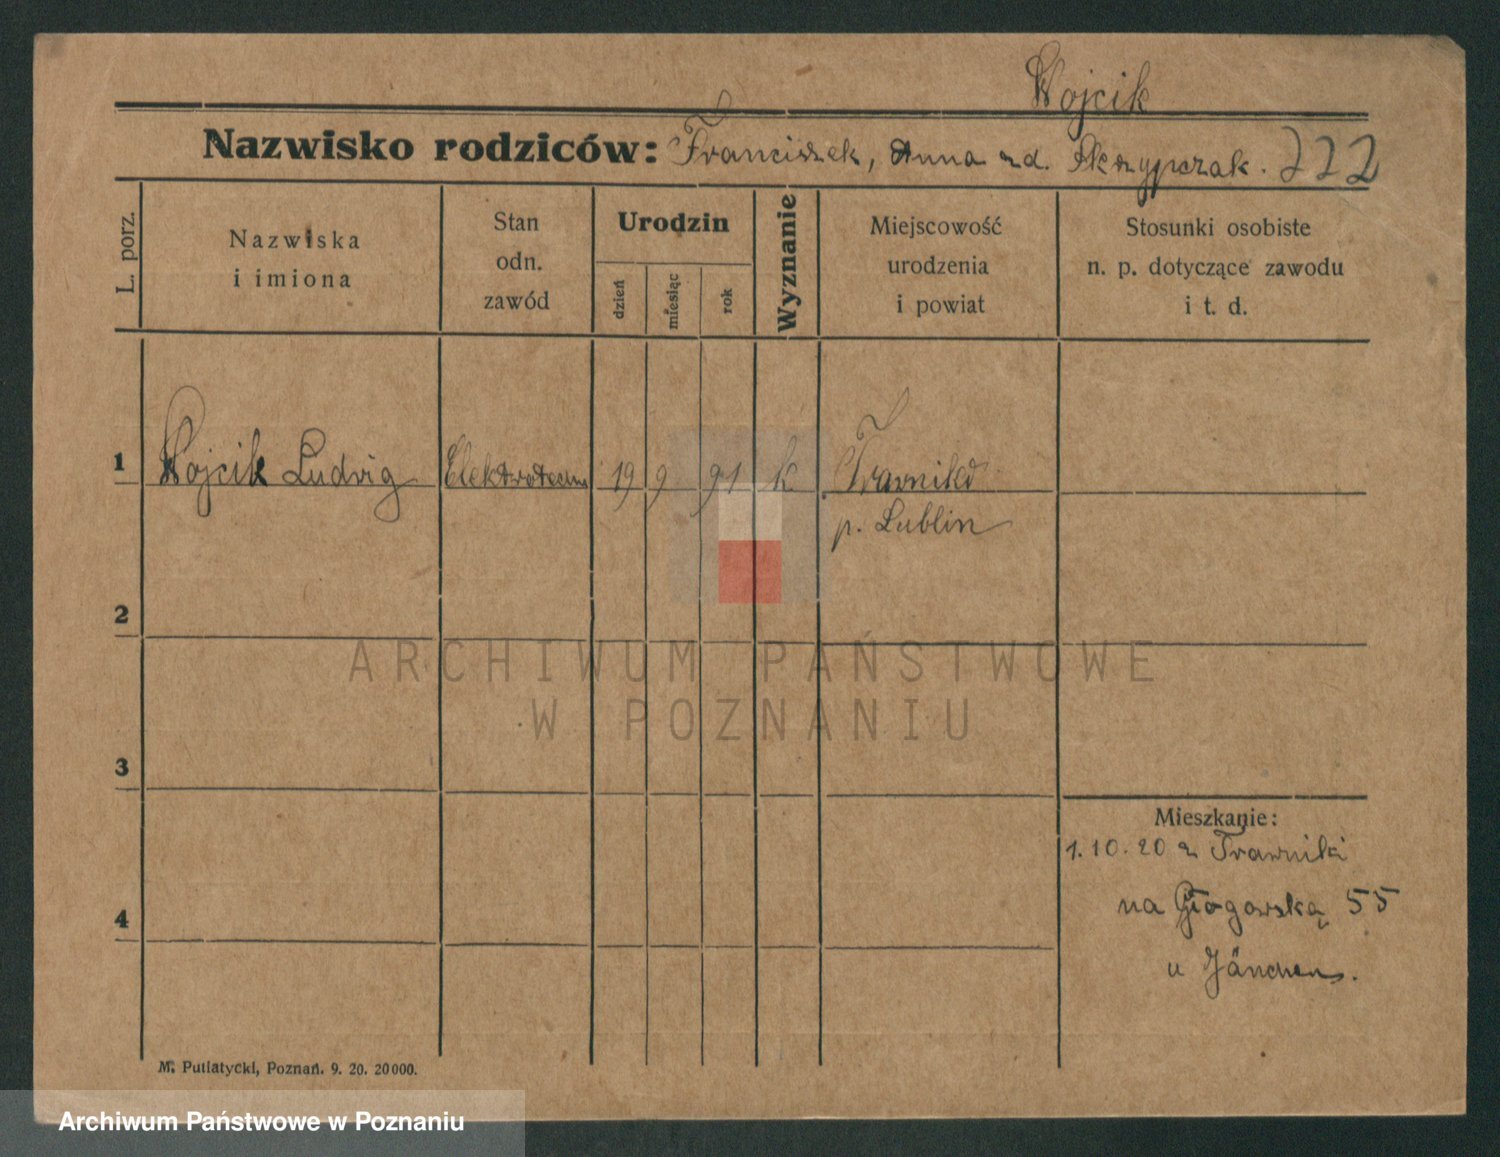 Wojcik
Nazwisko rodziców: Franciszek, Anna zd. Skrzypczak. 222
L. porz.
Nazwiska
i imiona
Stan
odn.
zawód
Urodzin
dzień
miesiąc
rok
Wyznanie
Miejscowość
urodzenia
i powiat
Stosunki osobiste
n. p. dotyczące zawodu
i t. d.
1 Wojcik Ludwig 19 9 91 k
p. Lublin
2
ARCHIWUM PAŃSTWOWE
W POZNANIU
3
Mieszkanie:
1.10.20 z Trawniki
4 na Głogowską 55
u Jänchen.
M. Putiatycki, Poznań. 9. 20. 20000.
Archiwum Państwowe w Poznaniu